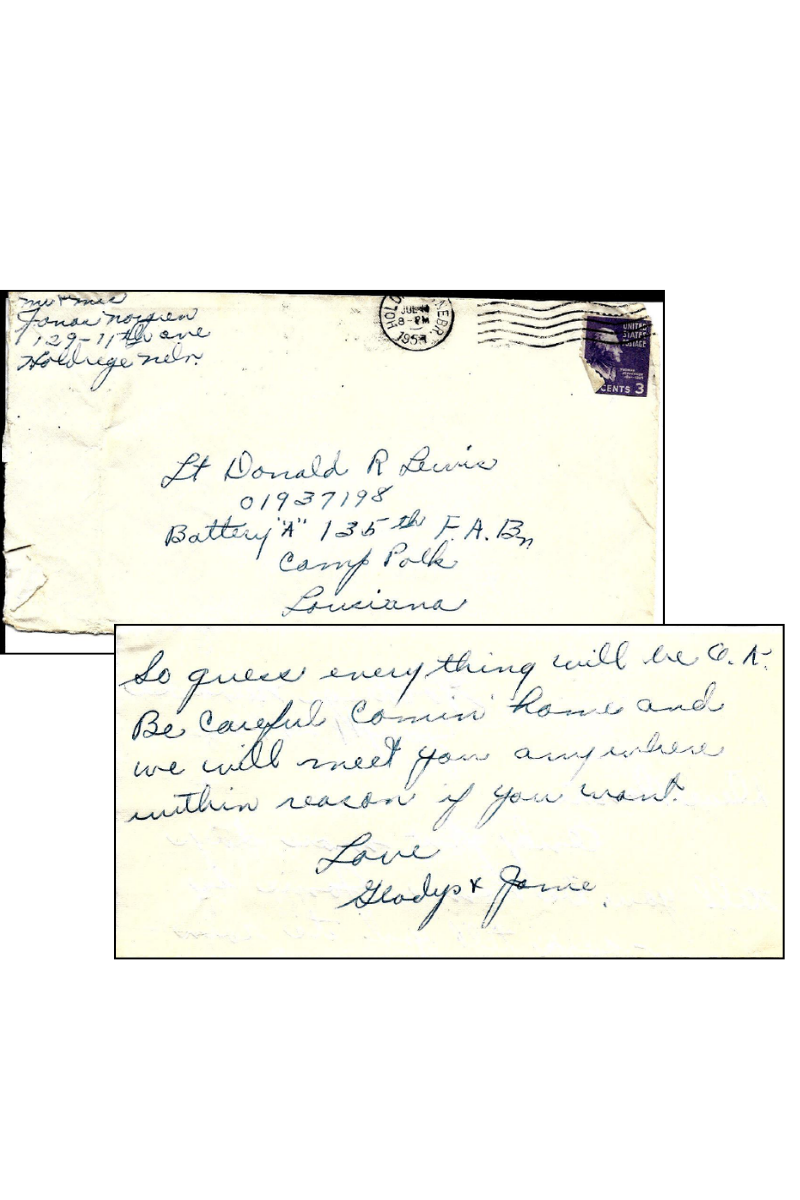 Mr & Mrs
Jonas
1129-11th ave
Holdrege Nebr.
HOLD NEBR.
JUL
8-PM
195
UNITED
STATES
POSTAGE
CENTS 3
Lt Donald R Lewis
01937198
Battery "A" 135th F.A. Bn
Camp Polk
Lousiana
So guess everything will be O.K.
Be careful comin' home and
we will meet you anywhere
within reason if you want.
Love
Gladys &